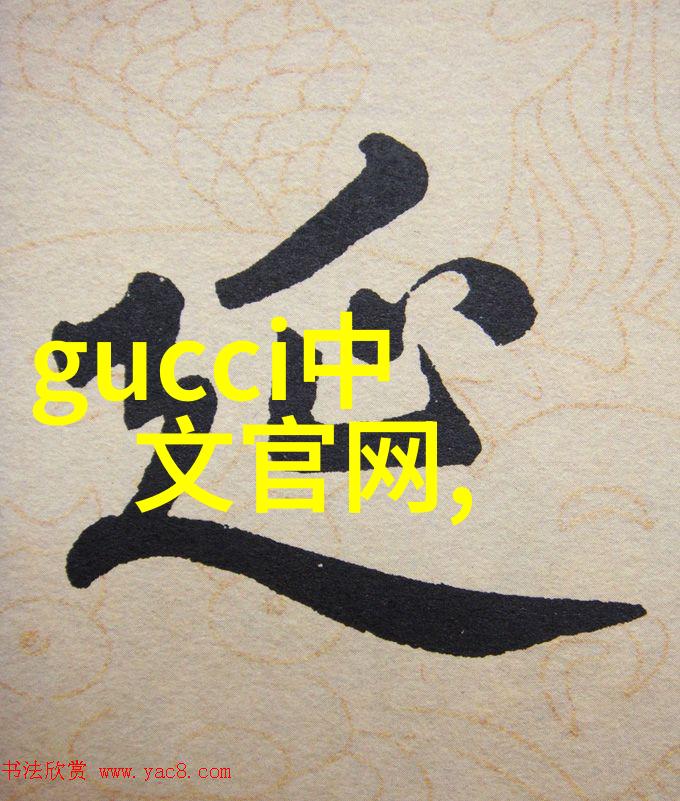 延
gucci中
文官网,
书法欣赏 www.yac8.com